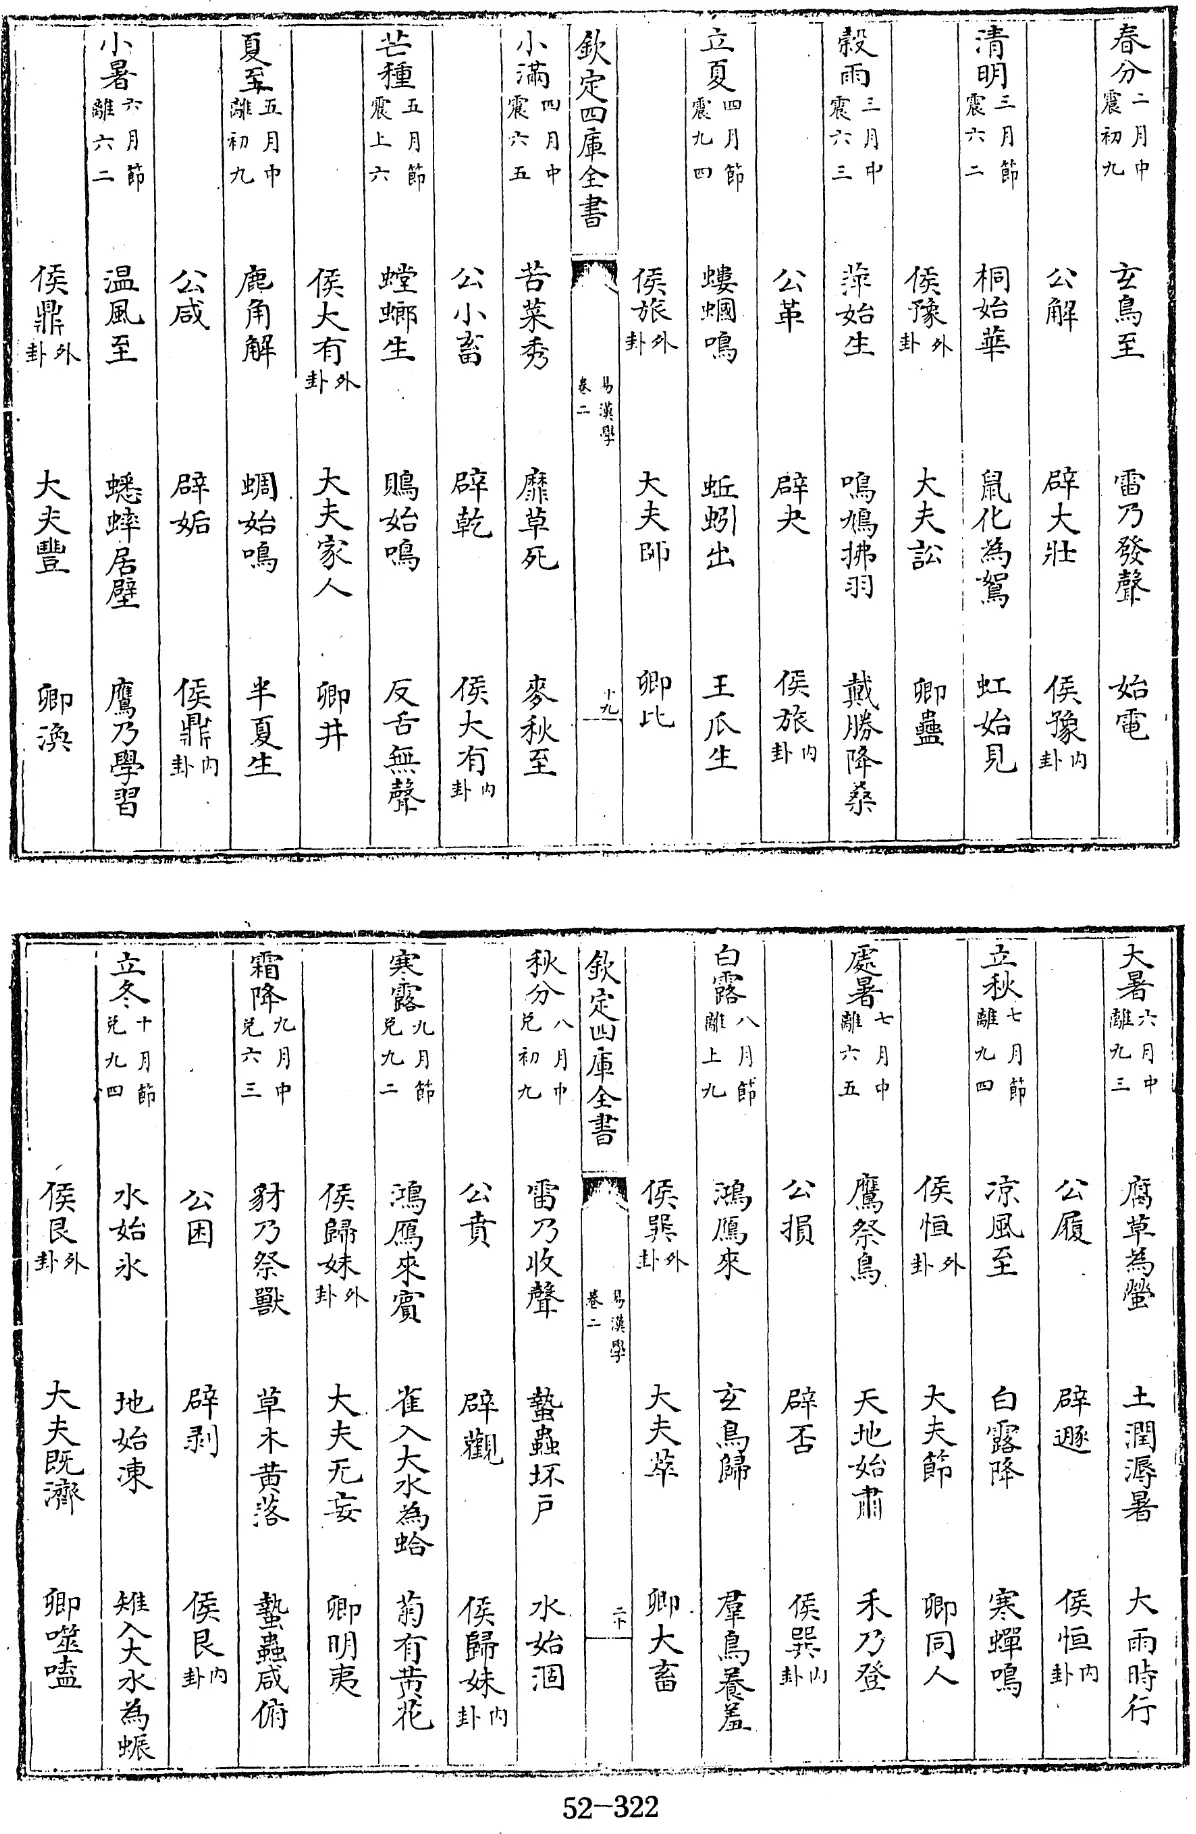 春分二月中震初九　玄鳥至　雷乃發聲　始電
公解　辟大壯　侯豫内卦
清明三月節震六二　桐始華　鼠化為鴽　虹始見
侯豫外卦　大夫訟　卿蠱
穀雨三月中震六三　萍始生　鳴鳩拂羽　戴勝降桑
公革　辟夬　侯旅内卦
立夏四月節震九四　螻蟈鳴　蚯蚓出　王瓜生
侯旅外卦　大夫師　卿比
欽定四庫全書　易漢學卷二　十九
小滿四月中震六五　苦菜秀　靡草死　麥秋至
公小畜　辟乾　侯大有内卦
芒種五月節震上六　螳螂生　鵙始鳴　反舌無聲
侯大有外卦　大夫家人　卿井
夏至五月中離初九　鹿角解　蜩始鳴　半夏生
公咸　辟姤　侯鼎内卦
小暑六月節離六二　温風至　蟋蟀居壁　鷹乃學習
侯鼎外卦　大夫豐　卿渙
大暑六月中離九三　腐草為螢　土潤溽暑　大雨時行
公履　辟遯　侯恒内卦
立秋七月節離九四　凉風至　白露降　寒蟬鳴
侯恒外卦　大夫節　卿同人
處暑七月中離六五　鷹祭鳥　天地始肅　禾乃登
公損　辟否　侯巽内卦
白露八月節離上九　鴻鴈來　玄鳥歸　羣鳥養羞
侯巽外卦　大夫萃　卿大畜
欽定四庫全書　易漢學卷二　二十
秋分八月中兌初九　雷乃收聲　蟄蟲坏戶　水始涸
公賁　辟觀　侯歸妹内卦
寒露九月節兌九二　鴻鴈來賓　雀入大水為蛤　菊有黄花
侯歸妹外卦　大夫无妄　卿明夷
霜降九月中兌六三　豺乃祭獸　草木黄落　蟄蟲咸俯
公困　辟剥　侯艮内卦
立冬十月節兌九四　水始氷　地始凍　雉入大水為蜃
侯艮外卦　大夫既濟　卿噬嗑
52-322